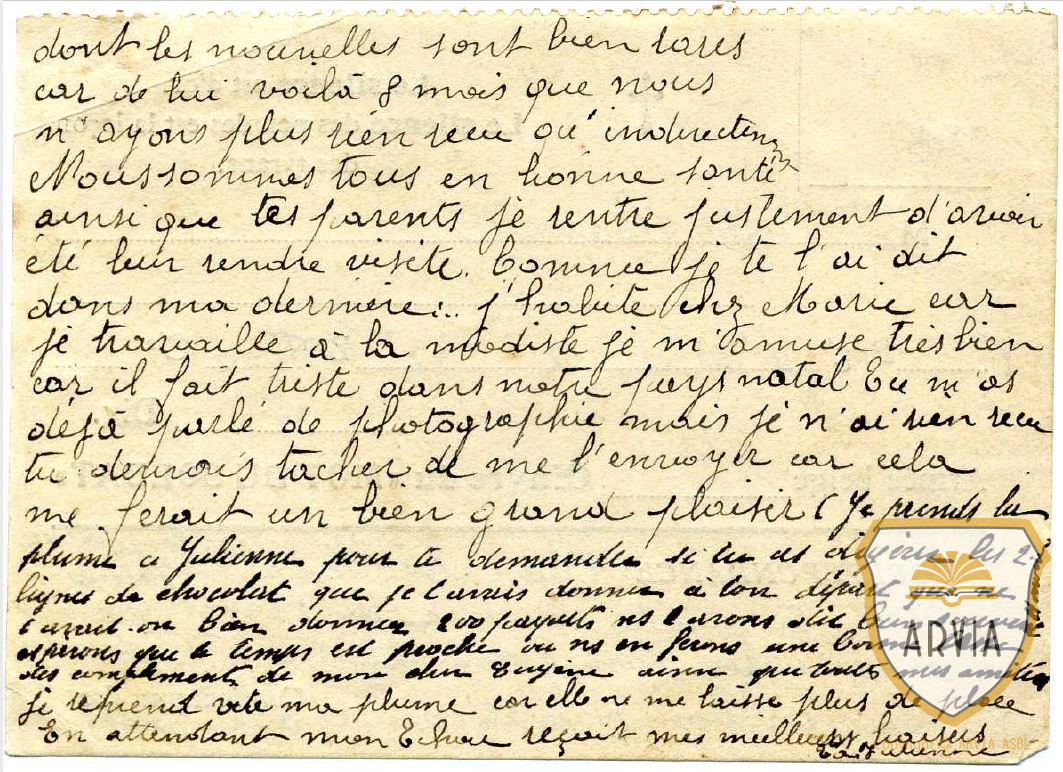 dont les nouvelles sont bien rares
car de lui voilà 8 mois que nous
n'ayons plus rien recu qu'indirectem
Nous sommes tous en bonne santé
ainsi que tes parents je rentre justement d'avoir
été leur rendre visite. Comme je te l'ai dit
dans ma derniere... j'habite chez Marie car
je travaille à la modiste je m'amuse très bien
car il fait triste dans notre pays natal Tu m'as
déjà parlé de photographie mais je n'ai rien recu
tu devrais tacher de me l'envoyer car cela
me ferait un bien grand plaisir (Je prends la
plume a Julienne pour te demander si tu as les 2
lignes de chocolat que je t'avais donner à ton départ que ne
t'avait on bien donner 200 paquets ns
esperons que le temps est proche ou ns en ferons une
des compliments de mon cher Eugène ainsi que mes amitiés
je reprend vite ma plume car elle ne me laisse plus de place
En attendant mon reçoit mes meilleurs baisers
Ta Julienne
ARVIA